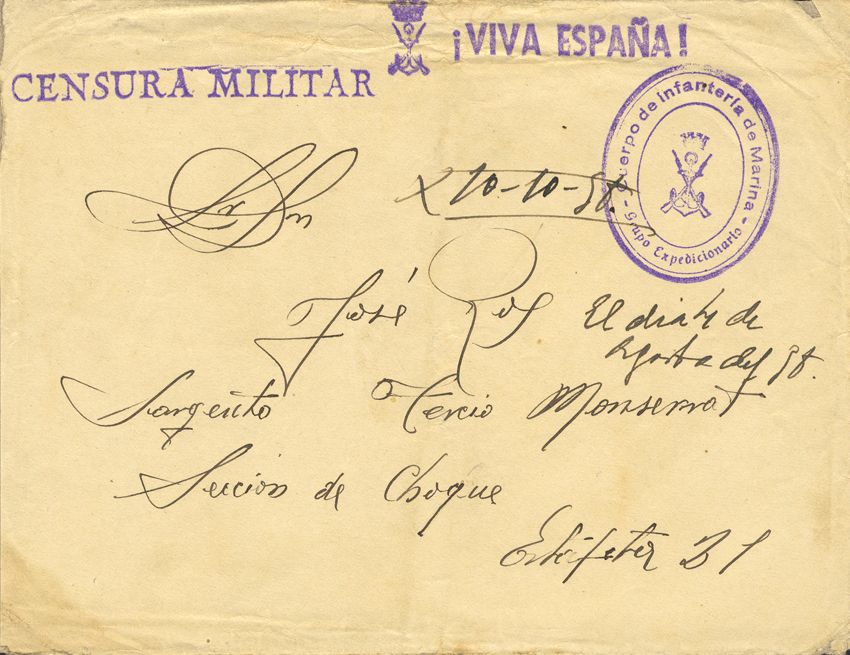 ¡VIVA ESPAÑA!
CENSURA MILITAR
Cuerpo de Infantería de Marina
- Grupo Expedicionario -
Sr Dn
10-10-38.
José Ros
El dia de
Agosto del 38.
Sargento Tercio Monserrat
Seccion de Choque
Estafeta